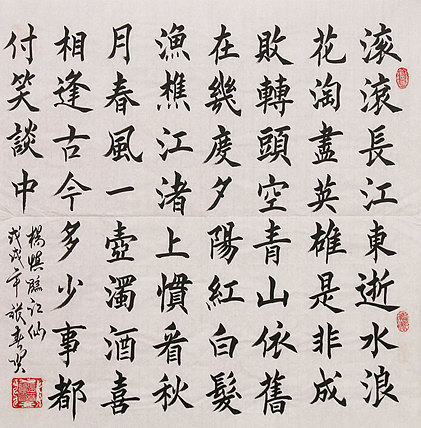 滚滾長江東逝水浪
花淘盡英雄是非成
敗轉頭空青山依舊
在幾度夕陽紅白髮
漁樵江渚上慣看秋
月春風一壺濁酒喜
相逢古今多少事都
付笑談中
楊慎臨江仙
戊戌年張春